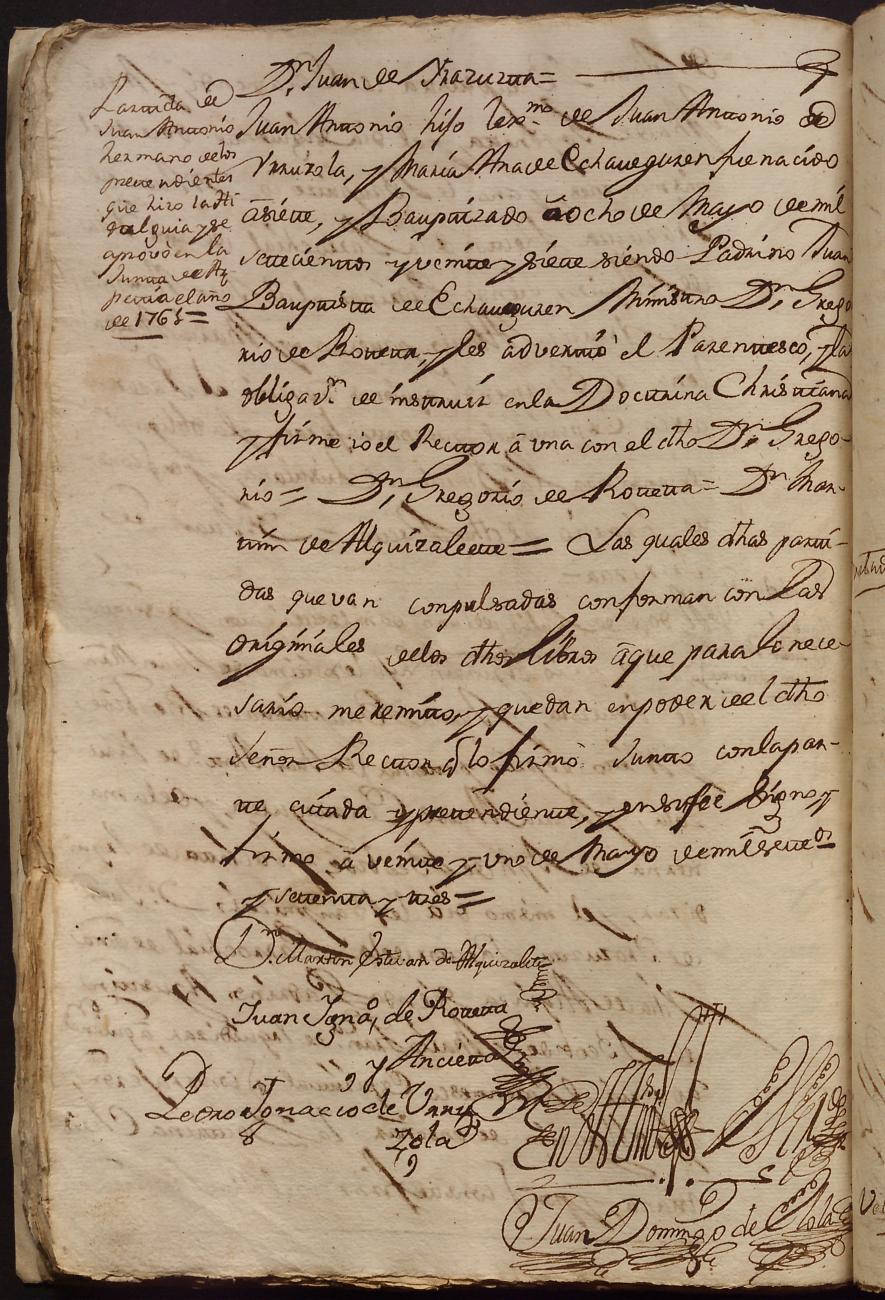 Dn. Juan de Yrazuzta =
Partida de
Juan Antonio
hermano delos
pretendientes
que hizo la Hi
dalguia y se
aprovó en la
Junta de Az
peitia el año
de 1765 =
Juan Antonio hijo lexmo. de Juan Antonio de
Vrruzola, y Maria Ana de Echaveguren fue nacido
à siette, y Bauptizado à ocho de Mayo de mil
settecientos y veintte y siete siendo Padrino Juan
Bauptista de Echaveguren Ministro Dn. Grego
rio de Rotetta, y les advertió el Parenttesco, y la
obligazn. de instruir enla Docttrina Christiana
y firme io el Rector à una con el dho Dn. Grego-
rio = Dn. Gregorio de Rotetta = Dn. Mar-
tin de Alquizalette = Las quales dhas parti-
das que van conpulsadas conforman con las
originales delos dhos libros à que para lo nece-
sario me remito, y quedan en poder del dho
Señor Rector q lo firmó Junto con la par-
te citada y pretendiente, y en su fee signo, y
firmo à veinte y uno de Mayo de mil settos.
y settenta y tres =
Dn. Martin Estevan de Alquizalete
Juan Igno. de Rotetta
y Ancieta
Pedro Ignacio de Urru
zola
Juan Domingo de